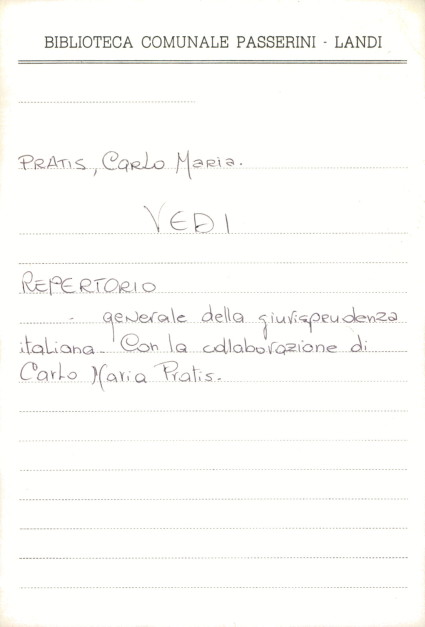 BIBLIOTECA COMUNALE PASSERINI - LANDI
PRATIS, Carlo Maria.
VEDI
REPERTORIO
- generale della giurisprudenza
italiana. Con la collaborazione di
Carlo Maria Pratis.